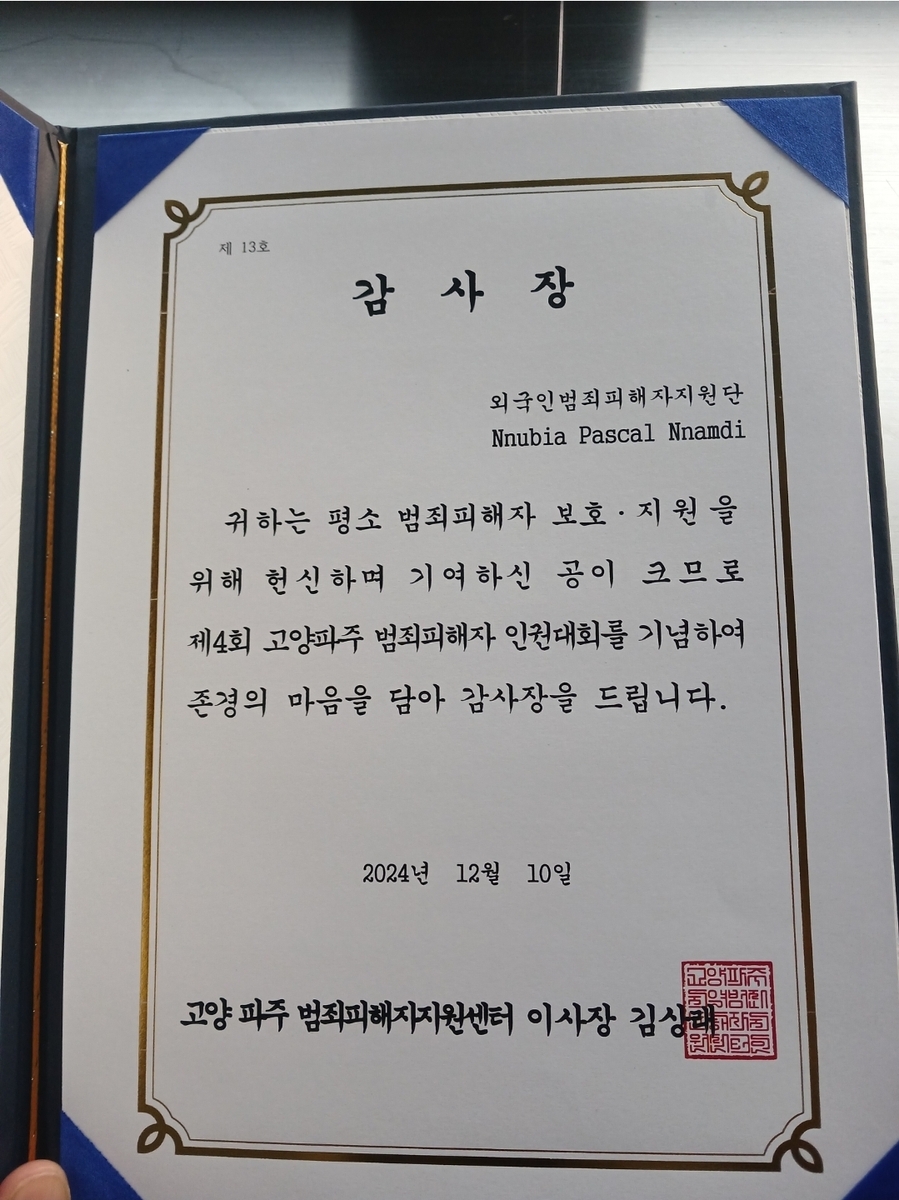 제 13호
감 사 장
외국인범죄피해자지원단
Nnubia Pascal Nnamdi
귀하는 평소 범죄피해자 보호·지원을
위해 헌신하며 기여하신 공이 크므로
제4회 고양파주 범죄피해자 인권대회를 기념하여
존경의 마음을 담아 감사장을 드립니다.
2024년 12월 10일
고양 파주 범죄피해자지원센터 이사장 김상래